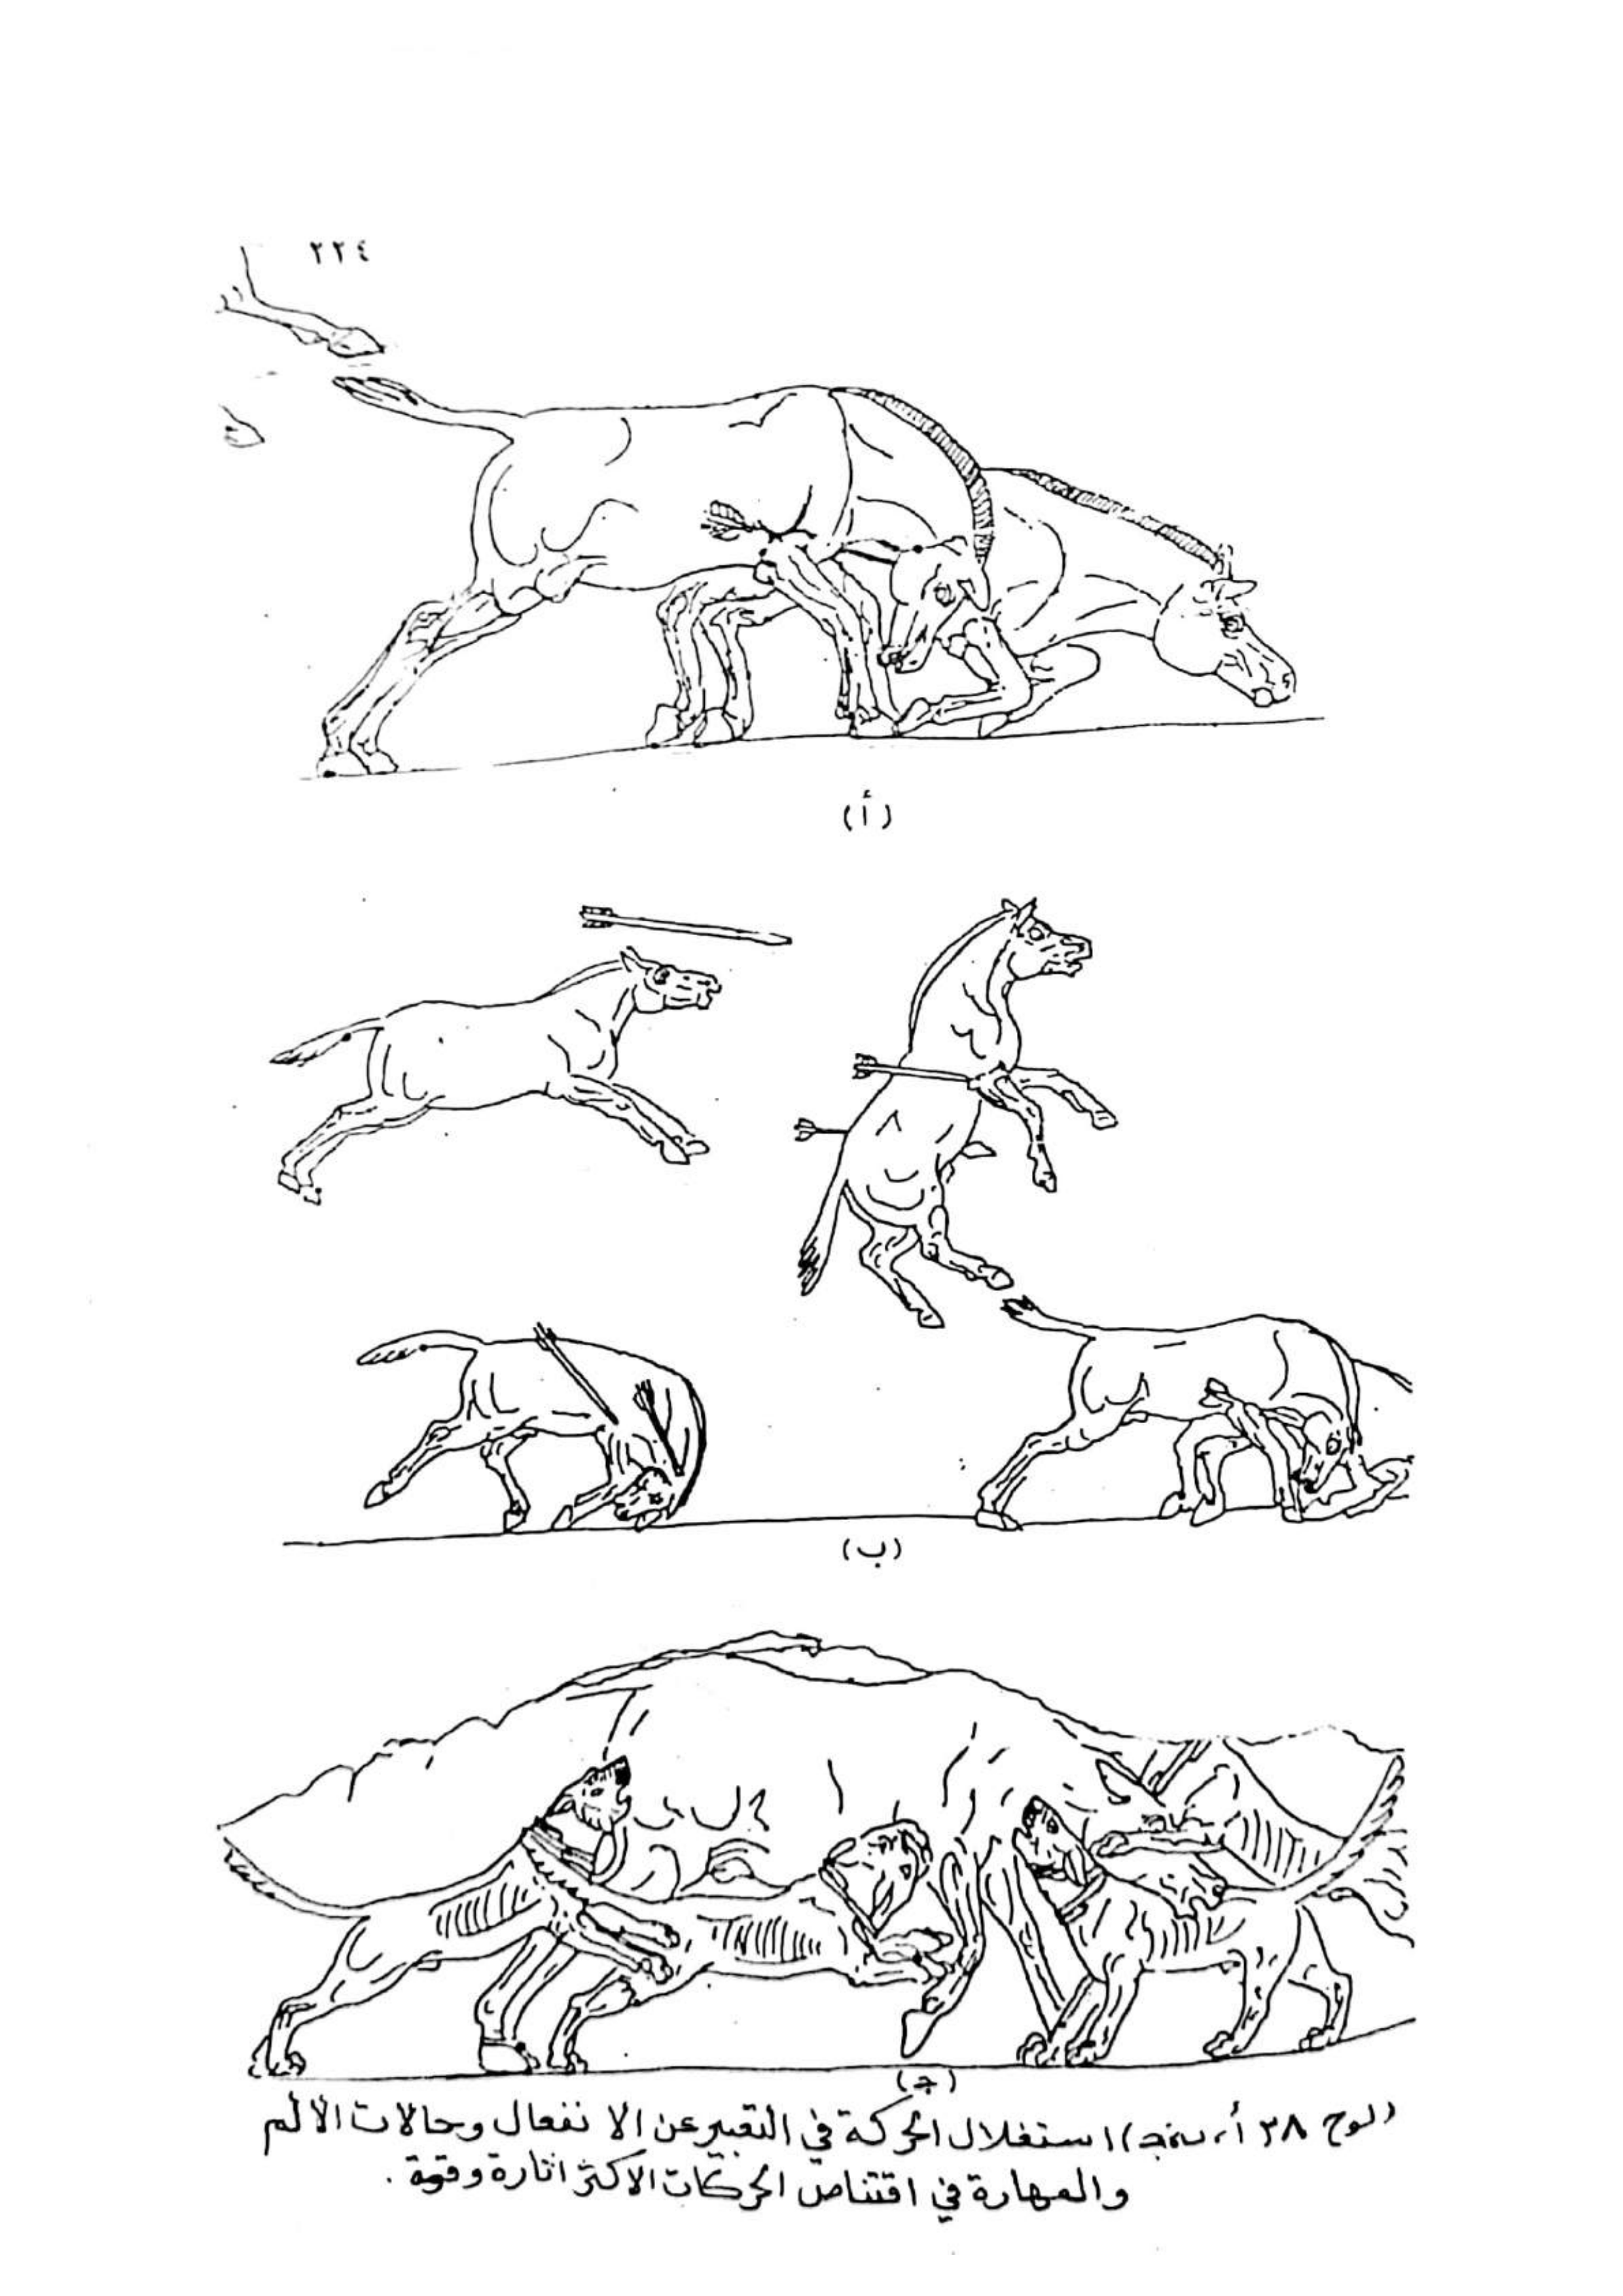 ٢٢٤
(أ)
(ب)
(ج)
(لوح ٣٨ أ، ب، ج) استغلال الحركة في التعبير عن الانفعال وحالات الألم
والمهارة في اقتناص الحركات الاكثر اثارة وقوة .